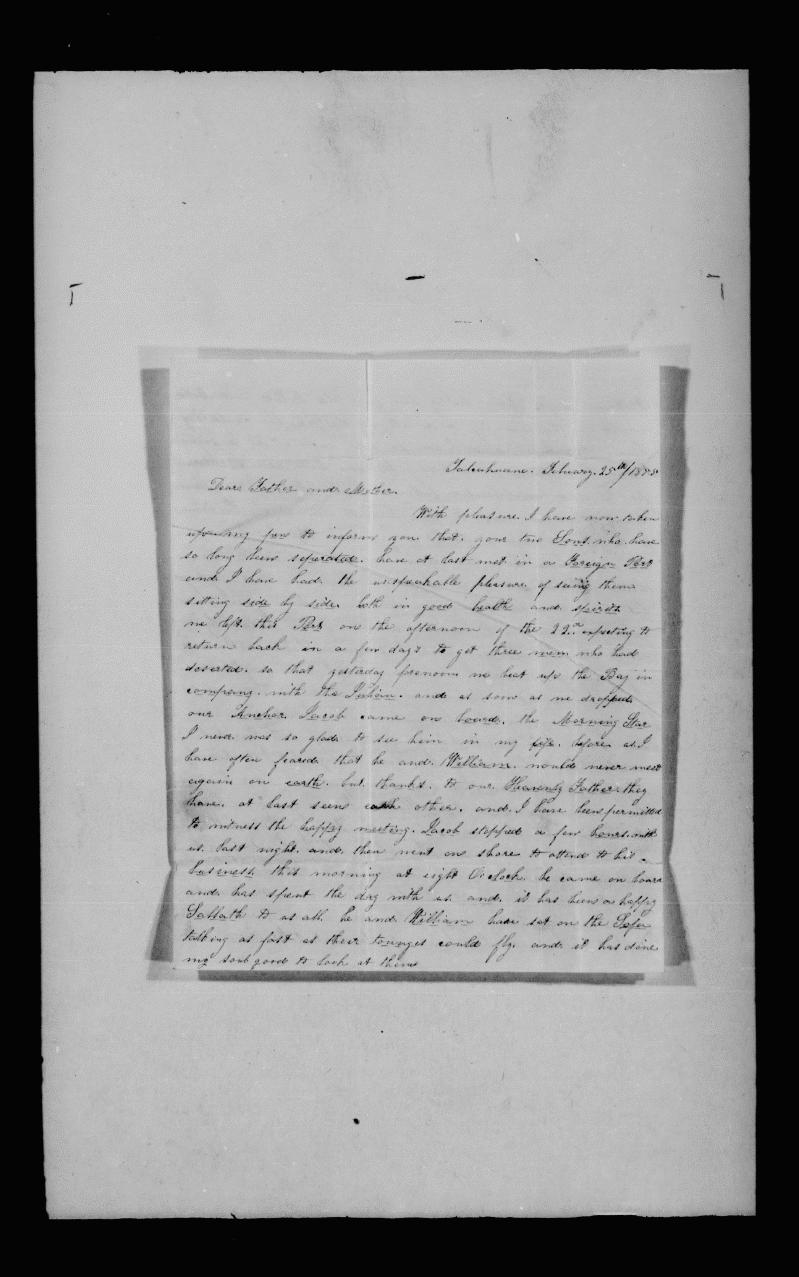 Talcahuano. February. 25th/1855
Dear Father and Mother.
With pleasure. I have now taken
upon my pen to inform you that. your two Sons. who. have
so long been seperated. have at last met in a Foreign Port
and I have had. the unspeakable pleasure of seeing them
sitting side by side. both in good health and spirits.
we left. this Port on the afternoon of the 22nd expecting to
return back in a few days to get three men who had
deserted. so that yesterday forenoon we beat up the Bay in
company. with the Julian. and as soon as we dropped.
our Anchor. Jacob came on board. the Morning Star
I never was so glad to see him in my life. before as. I
have often feared that he and. William. would never meet
again on earth. but. thanks. to our. Heavenly Father. they
have. at last seens each other. and. I have been permitted
to witness the happy meeting. Jacob stopped a few hours. with
us. last night. and. then went on shore to attend to his
business. this morning at eight Oclock. he came on board
and. has spent the day with us. and. it has been a happy
Sabbath to us all. he and. William have sat on the Sofa
talking as fast as their tounges could fly. and. it has done
my soul good to look at them